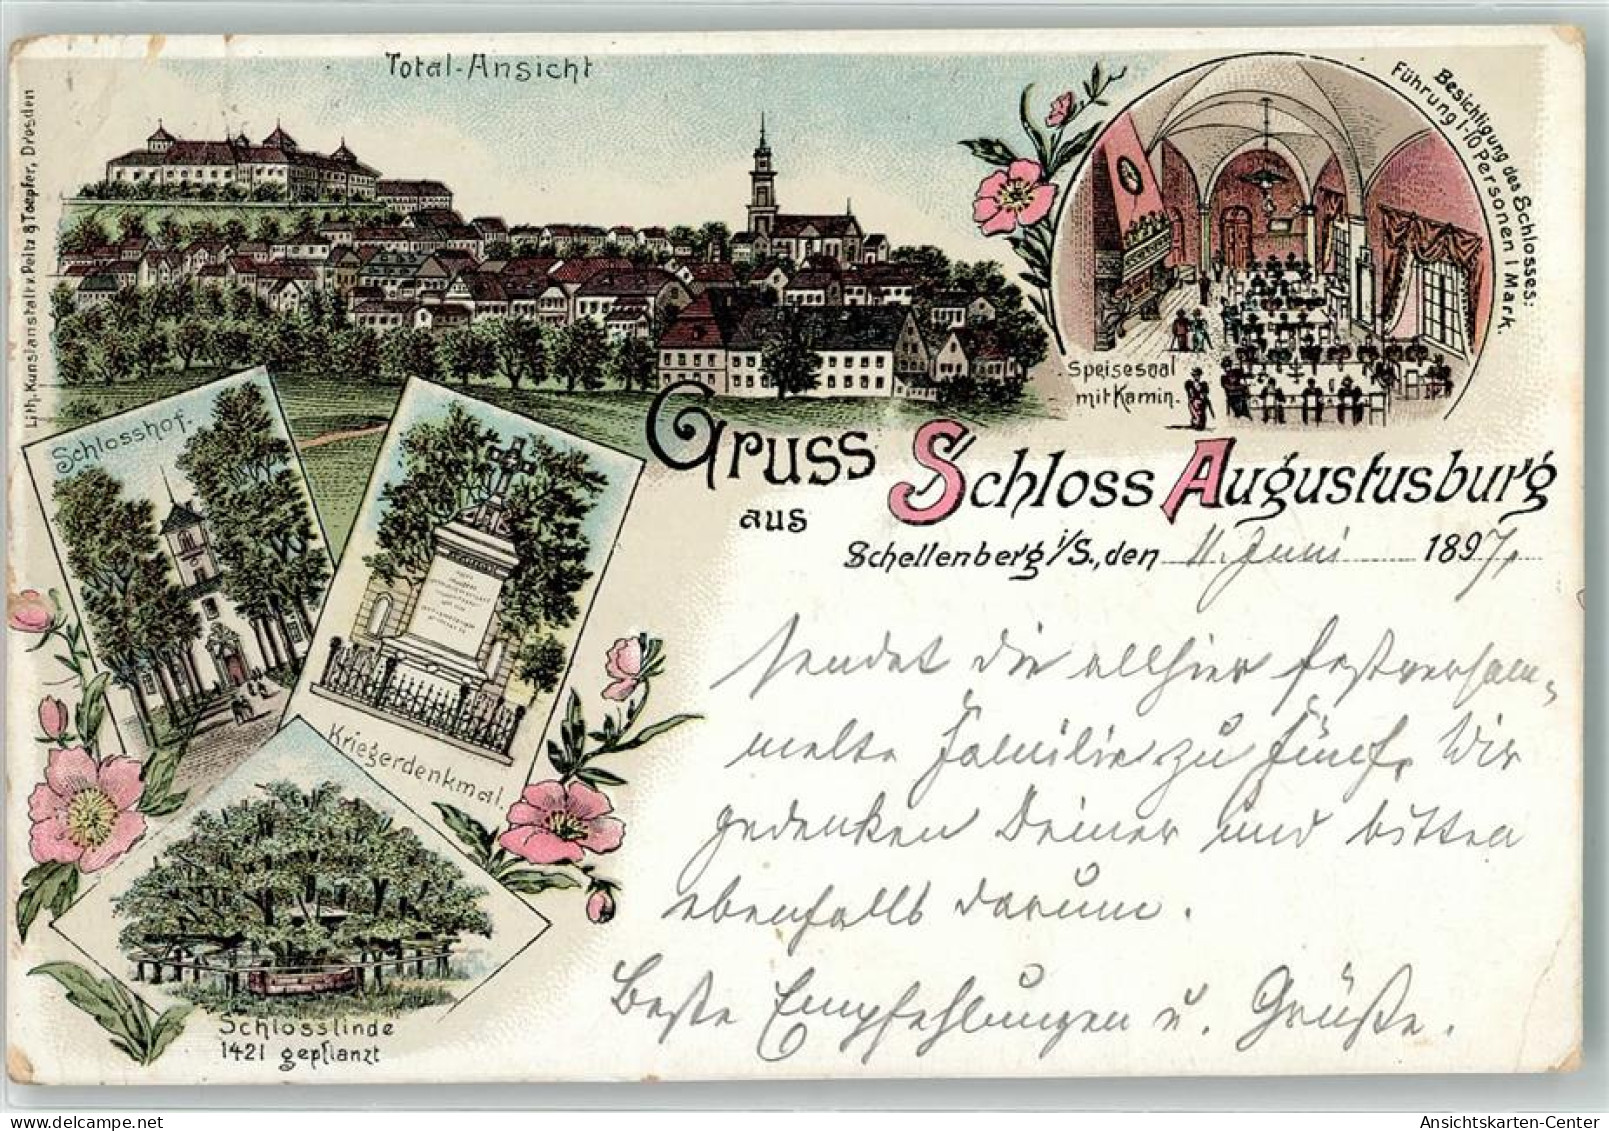 Total-Ansicht
Lith. Kunstanstalt v. Peltz & Toepfer, Dresden
Besichtigung des Schlosses:
Führung 1-10 Personen 1 Mark
Speisesaal
mit Kamin.
Schlosshof.
Kriegerdenkmal.
Schlosslinde
1421 gepflanzt
Gruss
aus
Schloss Augustusburg
Schellenberg i/S., den 11. Juni 1897.
sendet die allhier festversam-
melte Familie zu Fünf. Wir
gedenken Deiner und bitten
ebenfalls darum.
Beste Empfehlungen u. Grüße.
Ansichtskarten-Center